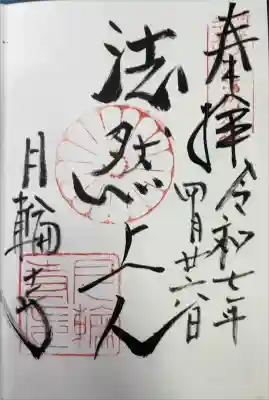 奉拝
令和七年
四月廿六日
法然上人
月輪寺